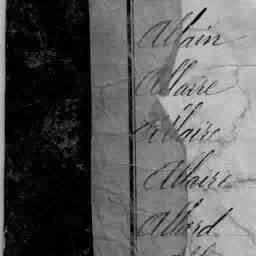 Allain
Allaire
Allaire
Allaire
Allard